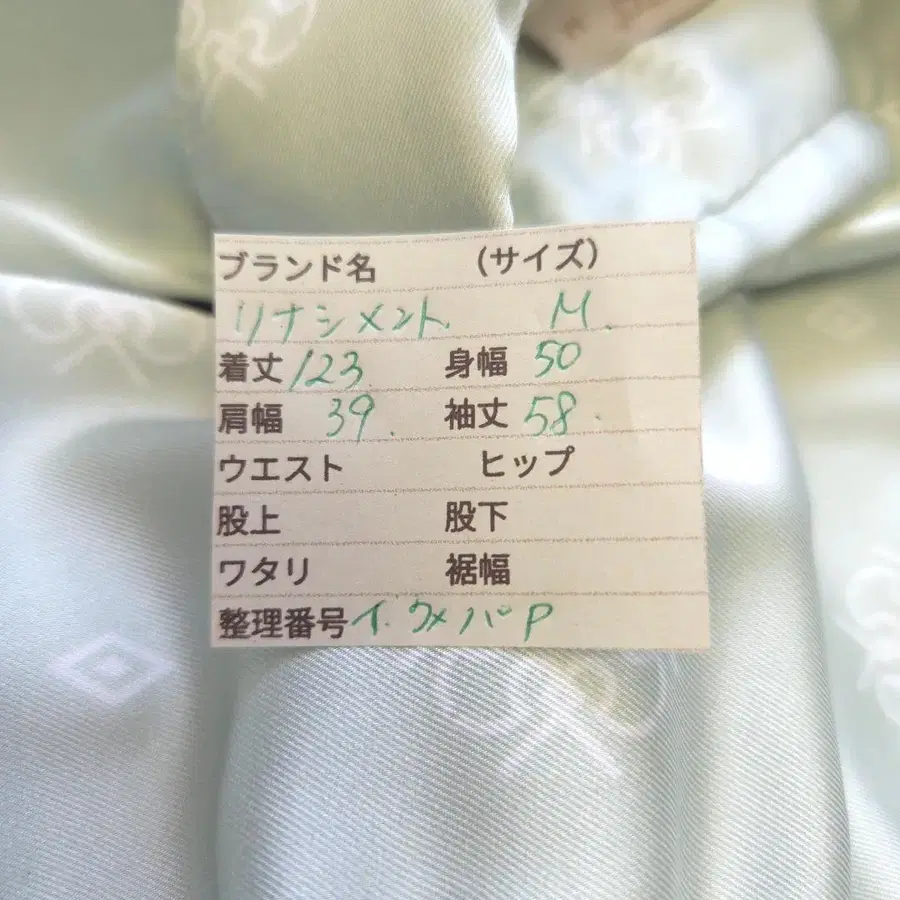 ブランド名 (サイズ)
リナシメント M.
着丈 123 身幅 50
肩幅 39. 袖丈 58.
ウエスト ヒップ
股上 股下
ワタリ 裾幅
整理番号